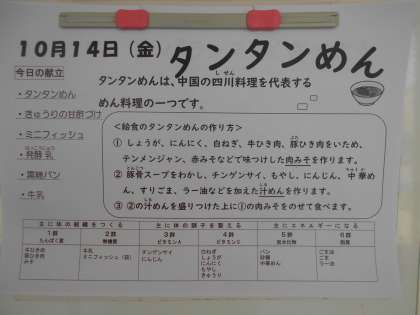 10月14日(金) タンタンめん
今日の献立
・タンタンめん
・きゅうりの甘酢づけ
・ミニフィッシュ
・発酵乳
・黒糖パン
・牛乳
タンタンめんは、中国の四川料理を代表する
めん料理の一つです。
<給食のタンタンめんの作り方>
① しょうが、にんにく、白ねぎ、牛ひき肉、豚ひき肉をいため、
テンメンジャン、赤みそなどで味つけした肉みそを作ります。
② 豚骨スープをわかし、チンゲンサイ、もやし、にんじん、中華め
ん、すりごま、ラー油などを加えた汁めんを作ります。
③ ②の汁めんを盛りつけた上に①の肉みそをのせて食べます。
主に体の組織をつくる 主に体の調子を整える 主にエネルギーになる
1群 2群 3群 4群 5群 6群
たんぱく質 無機質 ビタミンA ビタミンC 炭水化物 脂質
牛ひき肉
豚ひき肉
みそ
牛乳
ミニフィッシュ
チンゲンサイ
にんじん
白ねぎ
しょうが
にんにく
もやし
きゅうり
パン
砂糖
中華めん
ごま油
ごま
ラー油